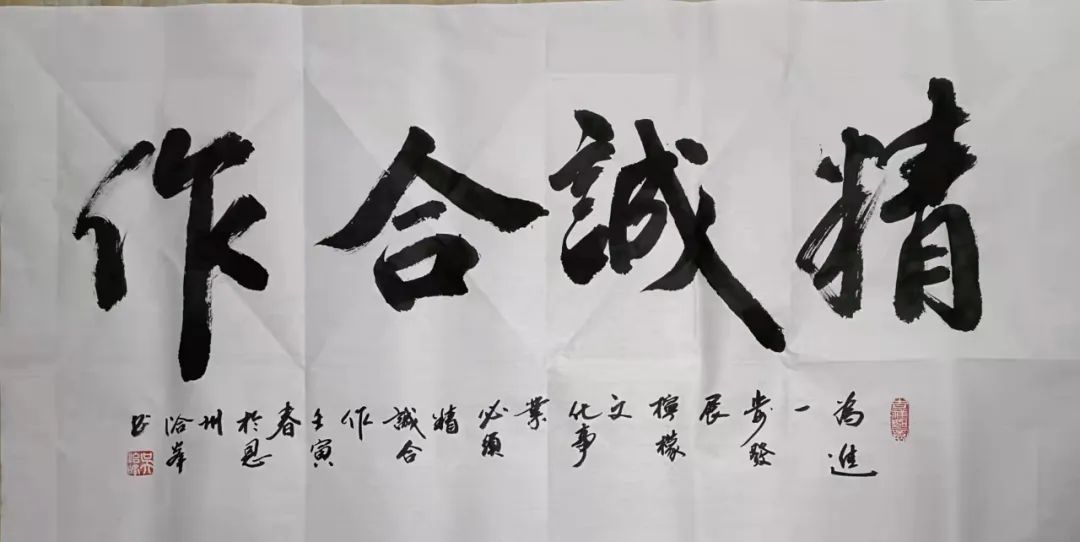 精誠合作
為進
一
步發
展
檸檬
文
化事
業
必須
精
誠合
作
壬寅
春
於恩
州
洽峯
书